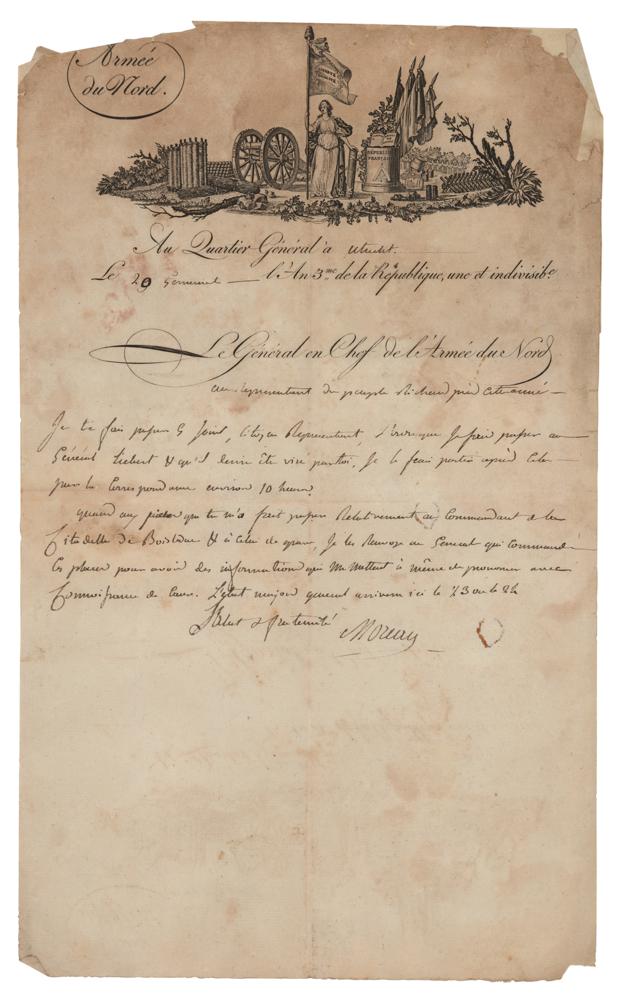 Armée
du Nord.
RÉPUBLIQUE
FRANÇAISE
Au Quartier Général à Utrecht.
Le 29 Germinal l'An 3.me de la République, une et indivisib.e
Le Général en Chef de l'Armée du Nord
au Representant du peuple Richard
Je te fais passer cy Joint, Citoyen Representant, Je fais passer au
Général Liebert & qu'il devra être visé par toi, Je le ferai partir
par la Correspondance environ 10 heures
quand aux que tu m'a fait passer Relativement au Commandant de la
Citadelle de Boisleduc & à Celui de grave, Je les Renvoye au General qui Commande
Ces places pour avoir des informations qui me mettent à même de prononcer avec
Connoissance de Cause. L'état major general arrivera ici le 23 ou le 24
Salut & fraternité
Moreau